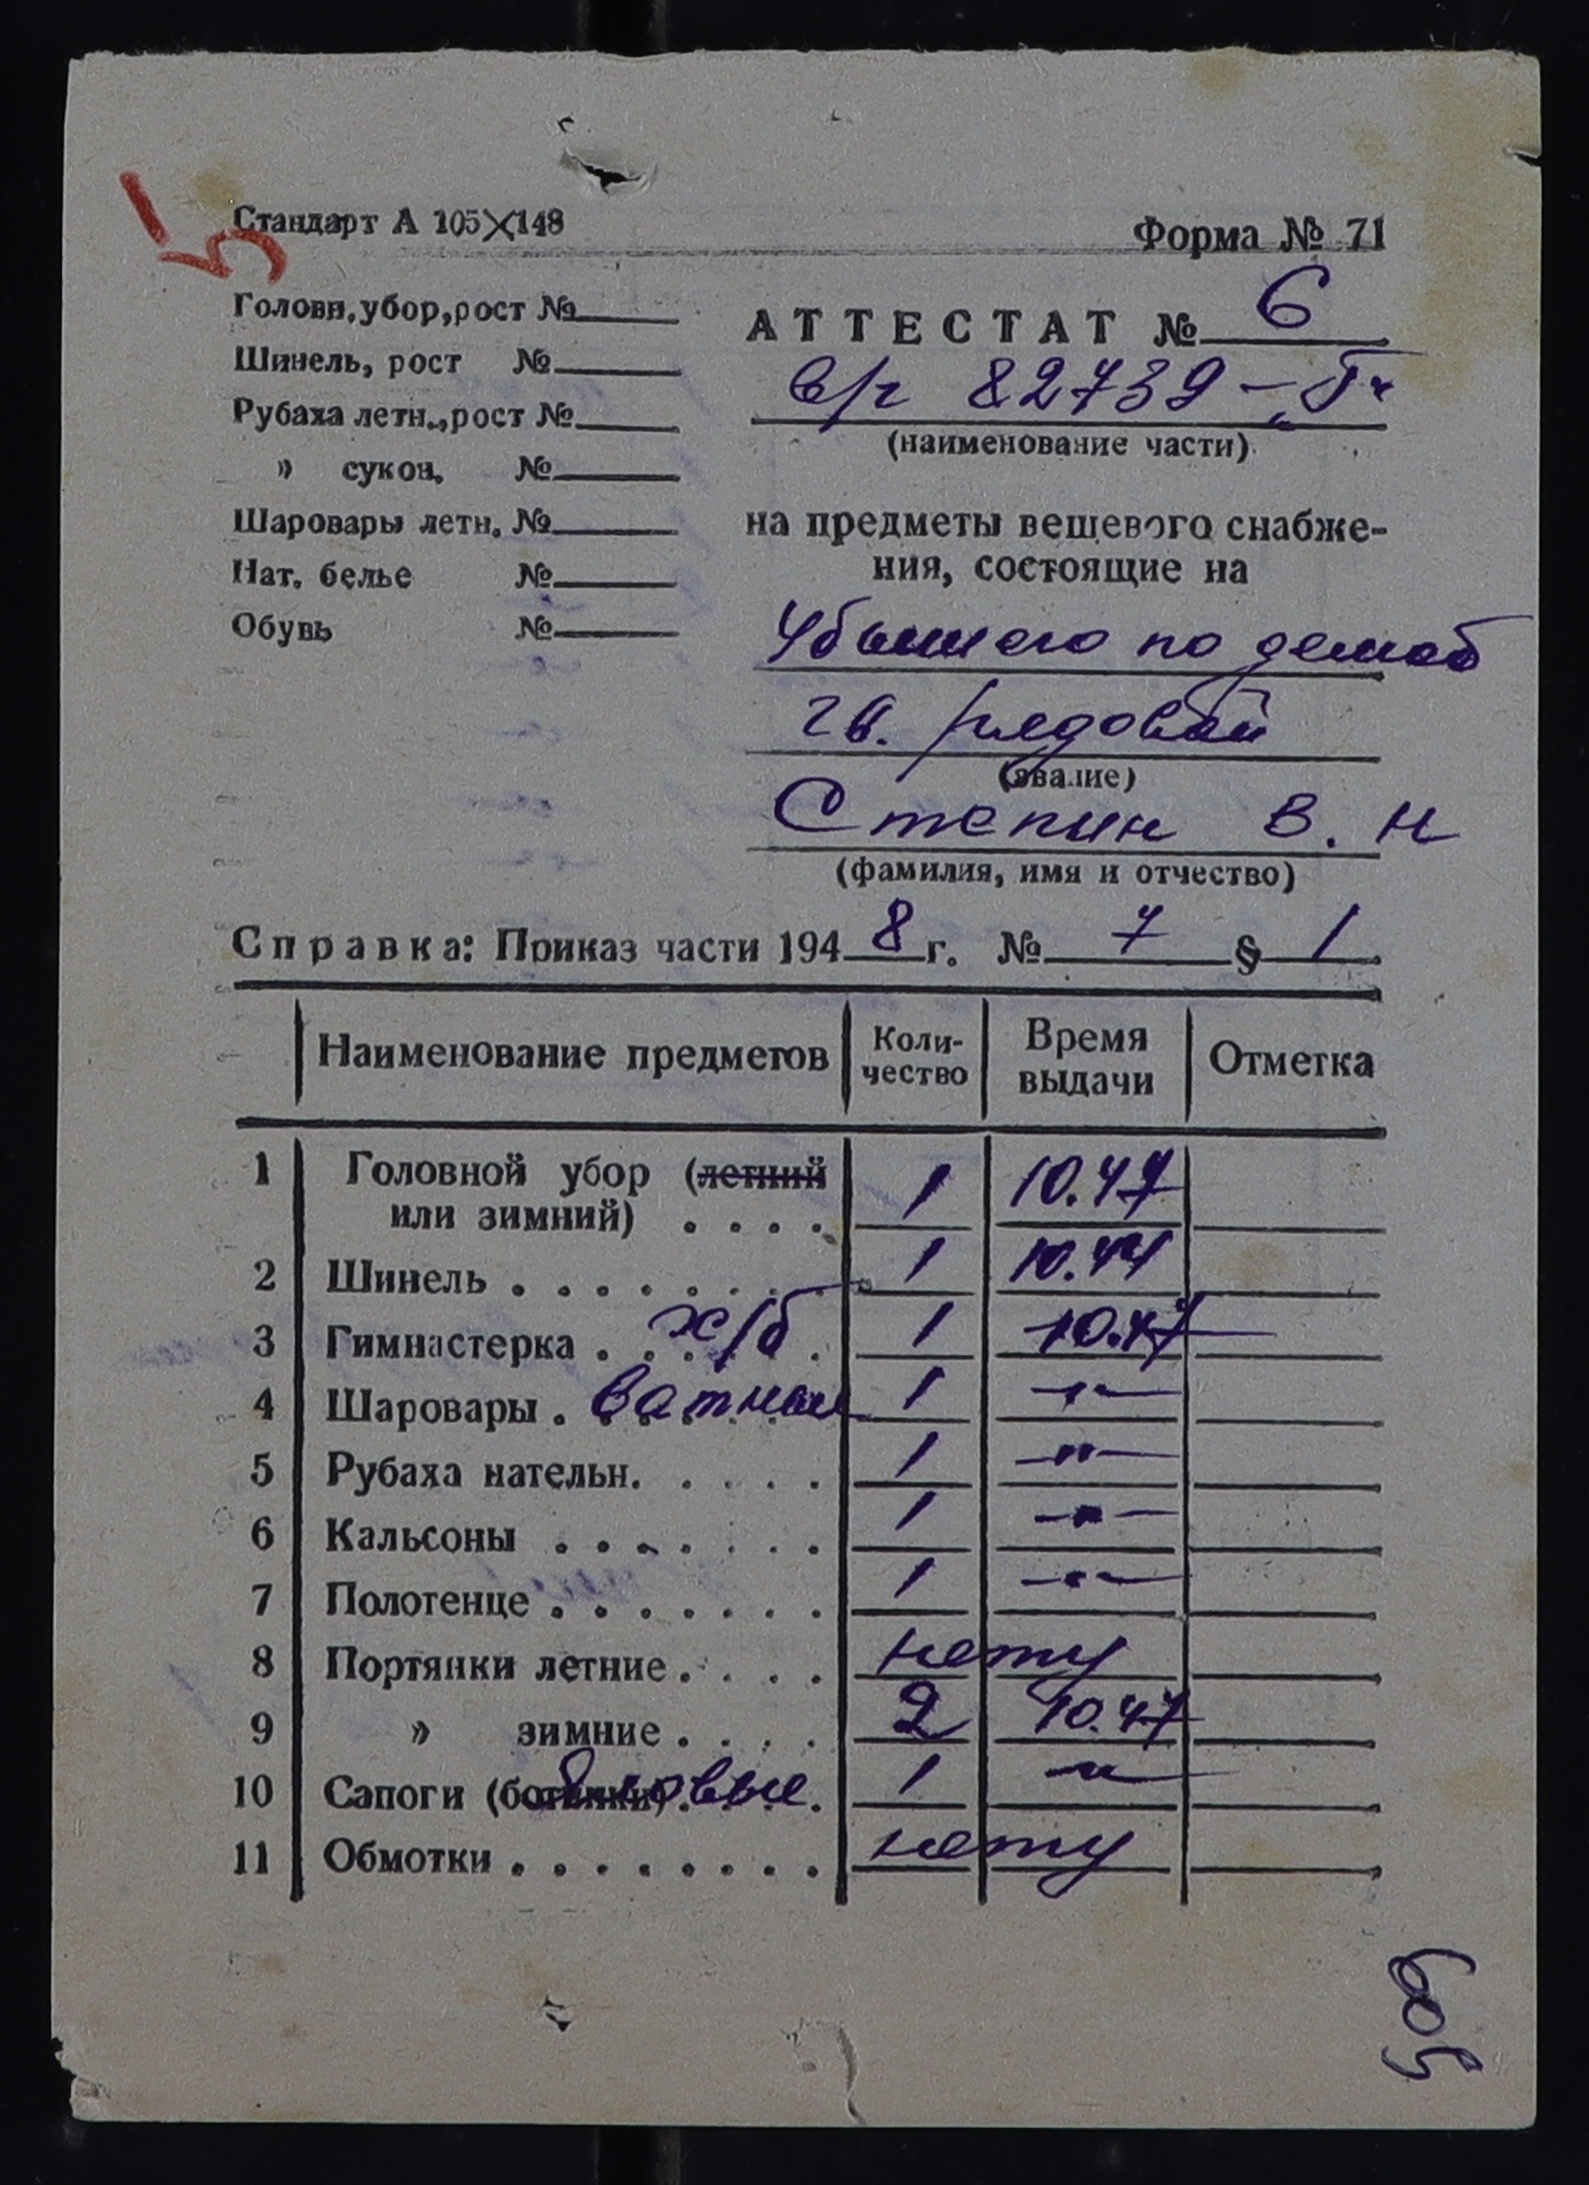 5
Стандарт А 105×148
Форма № 71
Головн. убор, рост №
Шинель, рост №
Рубаха летн., рост №
» сукон. №
Шаровары летн. №
Нат. белье №
Обувь №
АТТЕСТАТ № 6
в/ч 82739 - "Г"
(наименование части)
на предметы вещевого снабже-
ния, состоящие на
Убывшего по демоб
гв. рядовой
(звание)
Степин В. Н
(фамилия, имя и отчество)
Справка: Приказ части 1948 г. № 7 § 1
Наименование предметов Коли-чество Время выдачи Отметка
1 Головной убор (летний
или зимний) . . . . 1 10.47
2 Шинель . . . . . . . . 1 10.44
3 Гимнастерка . х/б . 1 10.47
4 Шаровары . ватные 1 -"-
5 Рубаха нательн. . . . . 1 -"-
6 Кальсоны . . . . . . . 1 -"-
7 Полотенце . . . . . . . 1 -"-
8 Портянки летние . . . . нету
9 » зимние . . . . 2 10.47
10 Сапоги (ботинки) . . . . 1 -"-
11 Обмотки . . . . . . . . нету
609